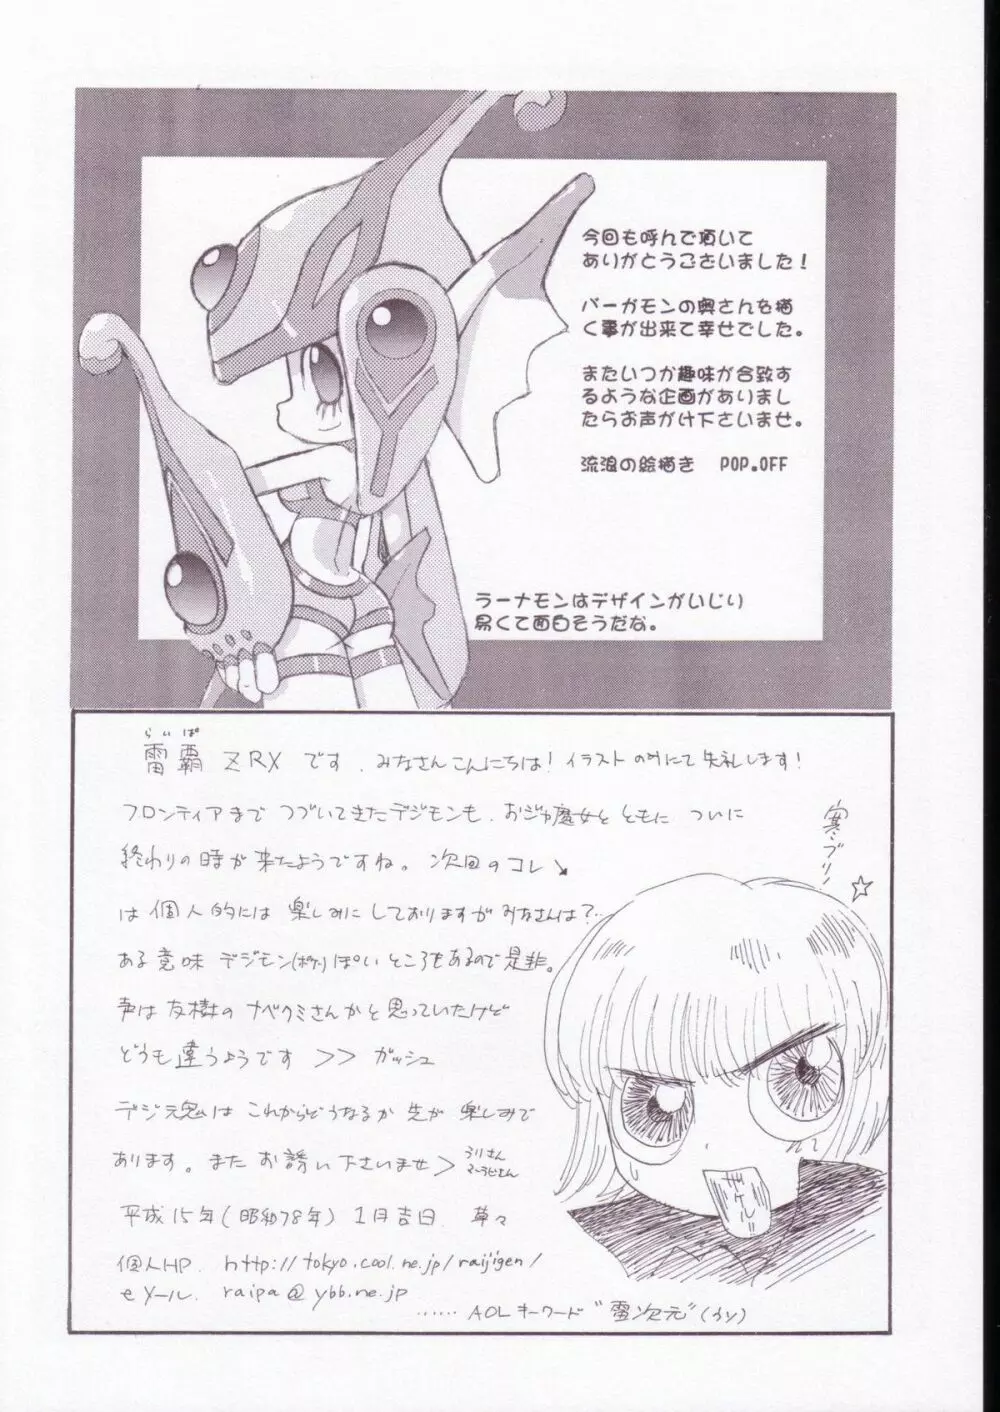 今回も呼んで頂いて
ありがとうございました！
バーガモンの奥さんを描
く事が出来て幸せでした。
またいつか趣味が合致す
るような企画がありまし
たらお声がけ下さいませ。
流浪の絵描き　POP.OFF
ラーナモンはデザインがいじり
易くて面白そうだな。
らいぱ
雷覇 ZRX です、みなさんこんにちは！イラストの外にて失礼します！
フロンティアまで つづいてきたデジモンも、おジャ魔女と ともに ついに
終わりの時が来たようですね。次回のコレ↘
は個人的には 楽しみにしておりますがみなさんは？…
ある意味 デジモン(ポケ)ぽい ところもあるので是非。
声は友樹の ナベクミさんかと思っていたけど
どうも違うようです >> ガッシュ
デジ魂は これからどうなるか 先が 楽しみで
あります。また お誘い下さいませ>
平成15年(昭和78年) 1月吉日、草々
個人HP. http://tokyo.cool.ne.jp/raijigen/
eメール. raipa@ybb.ne.jp
…… AOLキーワード "雷次元" (うソ)
寒ブリ！
☆
ザケル!!